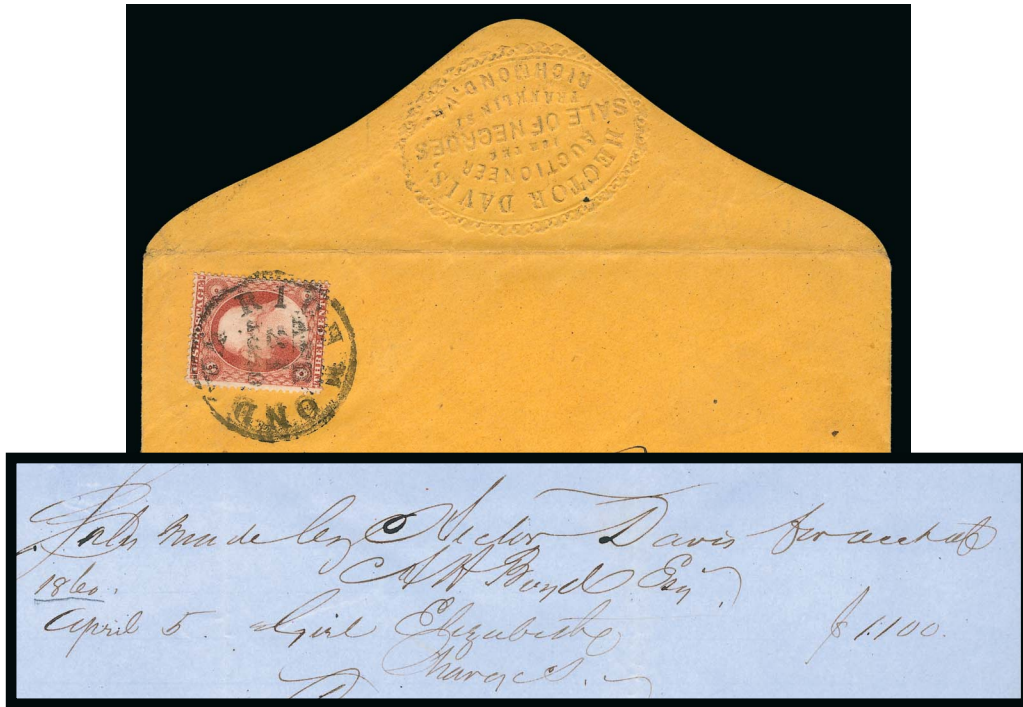 HECTOR DAVIS,
AUCTIONEER
FOR THE
SALE OF NEGROES
FRANKLIN ST
RICHMOND, VA.
U.S. POSTAGE
THREE CENTS
RICHMOND
Sales made by Hector Davis for acct of
A H Boyd Esq
1860.
April 5. Girl Elizabeth $1100.
Charges.